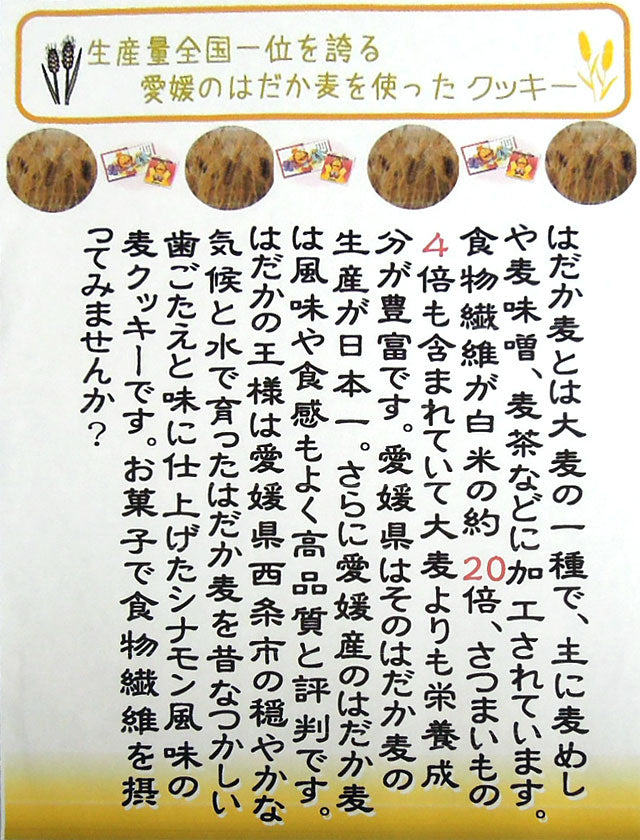 生産量全国一位を誇る
愛媛のはだか麦を使った クッキー
はだか麦とは大麦の一種で、主に麦めし
や麦味噌、麦茶などに加工されています。
食物繊維が白米の約20倍、さつまいもの
4倍も含まれていて大麦よりも栄養成
分が豊富です。愛媛県はそのはだか麦の
生産が日本一。さらに愛媛産のはだか麦
は風味や食感もよく高品質と評判です。
はだかの王様は愛媛県西条市の穏やかな
気候と水で育ったはだか麦を昔なつかしい
歯ごたえと味に仕上げたシナモン風味の
麦クッキーです。お菓子で食物繊維を摂
ってみませんか?